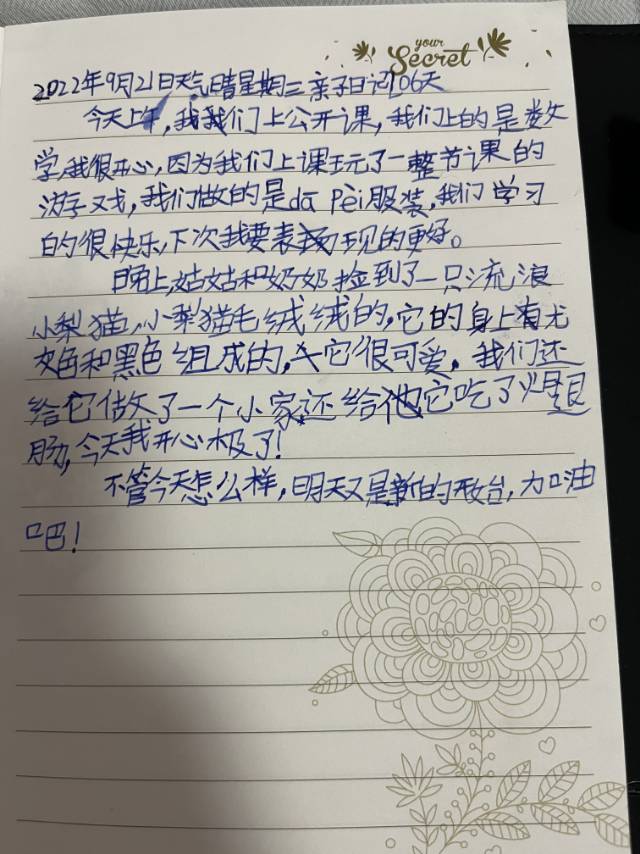 your
Secret
2022年9月21日天气晴星期三亲子日记106天
今天上午,我我们上公开课,我们上的是数
学,我很开心,因为我们上课玩了一整节课的
游戏,我们做的是dā Pèi服装,我们学习
的很快乐,下次我要表现的更好。
晚上,姑姑和奶奶捡到了一只流浪
小梨猫,小梨猫毛绒绒的,它的身上有灰
色和黑色组成的,它很可爱。我们还
给它做了一个小家,还给它吃了火腿
肠,今天我开心极了!
不管今天怎么样,明天又是新的开始,加油
吧!